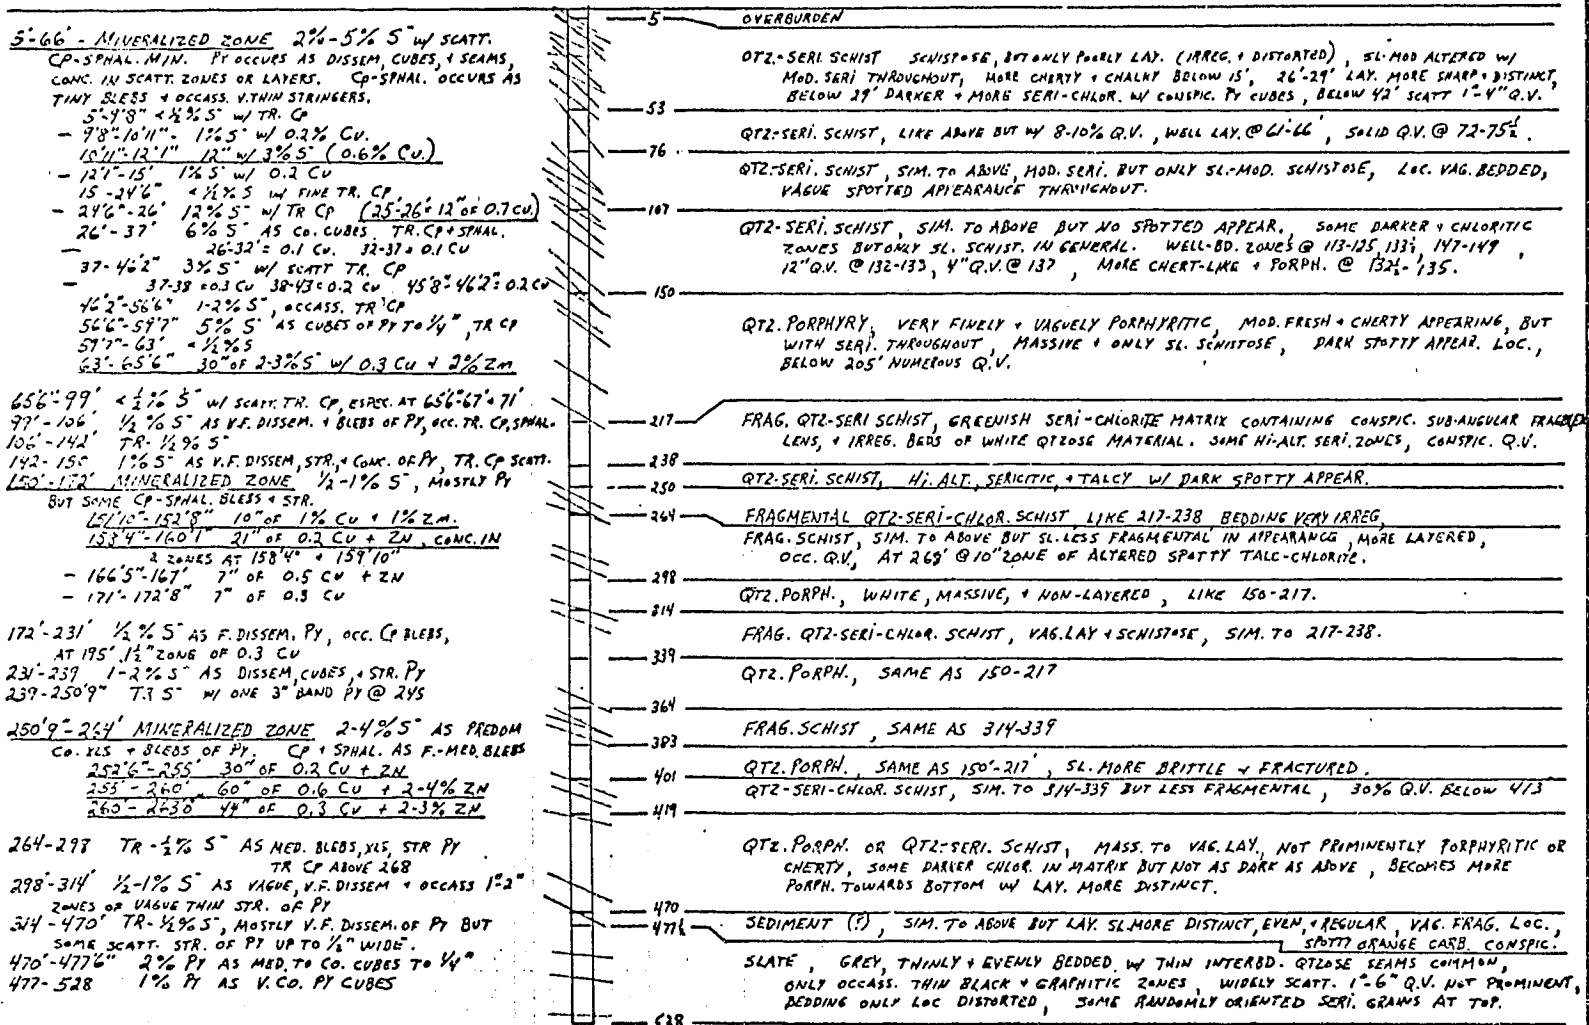 5'-66' - MINERALIZED ZONE 2%-5% S⁻ W/ SCATT.
CP-SPHAL. MIN. PY OCCURS AS DISSEM, CUBES, + SEAMS,
CONC. IN SCATT. ZONES OR LAYERS. CP-SPHAL. OCCURS AS
TINY BLEBS + OCCASS. V.THIN STRINGERS.
5'-9'8" < ½% S⁻ W/ TR. CP
- 9'8"-10'11"- 1% S⁻ W/ 0.2% CU.
10'11"-12'1" 12" W/ 3% S⁻ (0.6% CU.)
- 12'1"-15' 1% S⁻ W/ 0.2 CU
15-24'6" < ½% S W/ FINE TR. CP
- 24'6"-26' 12% S⁻ W/ TR CP (25'-26'= 12" OF 0.7 CU.)
26'-37' 6% S⁻ AS CO. CUBES. TR. CP + SPHAL.
- 26'-32' = 0.1 CU. 32-37 = 0.1 CU
37-46'2" 3% S⁻ W/ SCATT TR. CP
- 37-38 = 0.3 CU 38-43 = 0.2 CU 45'8"-46'2" = 0.2 CU
46'2"-56'6" 1-2% S⁻, OCCASS. TR CP
56'6"-59'7" 5% S⁻ AS CUBES OF PY TO ¼", TR CP
59'7"-63' < ½% S
63'-65'6" 30" OF 2-3% S⁻ W/ 0.3 CU + 2% ZN
65'6"-99' < ½% S⁻ W/ SCATT. TR. CP, ESPEC. AT 65'6"-67' + 71'
99'-106' ½% S⁻ AS V.F. DISSEM. + BLEBS OF PY, OCC. TR. CP, SPHAL.
106'-142' TR-½% S⁻
142-150 1% S⁻ AS V.F. DISSEM, STR., + CONC. OF PY, TR. CP SCATT.
150'-172' MINERALIZED ZONE ½-1% S⁻, MOSTLY PY
BUT SOME CP-SPHAL. BLEBS + STR.
151'10"-152'8" 10" OF 1% CU + 1% ZN.
153'4"-160'1" 21" OF 0.2 CU + ZN, CONC. IN
2 ZONES AT 158'4" + 159'10"
- 166'5"-167' 7" OF 0.5 CU + ZN
- 171'-172'8" 7" OF 0.3 CU
172'-231' ½% S⁻ AS F. DISSEM. PY, OCC. CP BLEBS,
AT 195' 1½" ZONE OF 0.3 CU
231'-239 1-2% S⁻ AS DISSEM, CUBES, + STR. PY
239-250'9" TR S⁻ W/ ONE 3" BAND PY @ 245
250'9"-264' MINERALIZED ZONE 2-4% S⁻ AS PREDOM
CO. XLS + BLEBS OF PY. CP + SPHAL. AS F.-MED. BLEBS
252'6"-255' 30" OF 0.2 CU + ZN
255'-260' 60" OF 0.6 CU + 2-4% ZN
260'-263'8" 44" OF 0.3 CU + 2-3% ZN
264-298 TR-½% S⁻ AS MED. BLEBS, XLS, STR PY
TR CP ABOVE 268
298'-314' ½-1% S⁻ AS VAGUE, V.F. DISSEM + OCCASS 1"-2"
ZONES OF VAGUE THIN STR. OF PY
314-470' TR-½% S⁻, MOSTLY V.F. DISSEM. OF PY BUT
SOME SCATT. STR. OF PY UP TO ½" WIDE.
470'-477'6" 2% PY AS MED. TO CO. CUBES TO ¼"
477-528 1% PY AS V. CO. PY CUBES
5 OVERBURDEN
QTZ.-SERI. SCHIST SCHISTOSE, BUT ONLY POORLY LAY. (IRREG. + DISTORTED), SL-MOD ALTERED W/
MOD. SERI THROUGHOUT, MORE CHERTY + CHALKY BELOW 15', 26'-29' LAY. MORE SHARP + DISTINCT,
BELOW 29' DARKER + MORE SERI-CHLOR. W/ CONSPIC. PY CUBES, BELOW 42' SCATT 1"-4" Q.V.
53
QTZ-SERI. SCHIST, LIKE ABOVE BUT W/ 8-10% Q.V., WELL LAY. @ 61-66', SOLID Q.V. @ 72-75½.
76
QTZ-SERI. SCHIST, SIM. TO ABOVE, MOD. SERI. BUT ONLY SL.-MOD. SCHISTOSE, LOC. VAG. BEDDED,
VAGUE SPOTTED APPEARANCE THROUGHOUT.
107
QTZ-SERI. SCHIST, SIM. TO ABOVE BUT NO SPOTTED APPEAR., SOME DARKER + CHLORITIC
ZONES BUT ONLY SL. SCHIST. IN GENERAL. WELL-BD. ZONES @ 113-125, 133½, 147-149,
12" Q.V. @ 132-133, 4" Q.V. @ 137, MORE CHERT-LIKE + PORPH. @ 132½-135.
150
QTZ. PORPHYRY, VERY FINELY + VAGUELY PORPHYRITIC, MOD. FRESH + CHERTY APPEARING, BUT
WITH SERI. THROUGHOUT, MASSIVE + ONLY SL. SCHISTOSE, DARK SPOTTY APPEAR. LOC.,
BELOW 205' NUMEROUS Q.V.
217 FRAG. QTZ-SERI SCHIST, GREENISH SERI-CHLORITE MATRIX CONTAINING CONSPIC. SUB-ANGULAR
LENS, + IRREG. BEDS OF WHITE QTZOSE MATERIAL. SOME HI-ALT. SERI. ZONES, CONSPIC. Q.V.
238
250 QTZ-SERI. SCHIST, HI. ALT., SERICITIC, + TALCY W/ DARK SPOTTY APPEAR.
264 FRAGMENTAL QTZ-SERI-CHLOR. SCHIST, LIKE 217-238, BEDDING VERY IRREG,
FRAG. SCHIST, SIM. TO ABOVE BUT SL. LESS FRAGMENTAL IN APPEARANCE, MORE LAYERED,
OCC. Q.V., AT 268' @ 10" ZONE OF ALTERED SPOTTY TALC-CHLORITE.
298
QTZ. PORPH., WHITE, MASSIVE, + NON-LAYERED, LIKE 150-217.
314
FRAG. QTZ-SERI-CHLOR. SCHIST, VAG. LAY + SCHISTOSE, SIM. TO 217-238.
339
QTZ. PORPH., SAME AS 150-217
364
FRAG. SCHIST, SAME AS 314-339
383
QTZ. PORPH., SAME AS 150'-217', SL. MORE BRITTLE + FRACTURED.
401
QTZ-SERI-CHLOR. SCHIST, SIM. TO 314-339 BUT LESS FRAGMENTAL, 30% Q.V. BELOW 413
419
QTZ. PORPH. OR QTZ-SERI. SCHIST, MASS. TO VAG. LAY., NOT PROMINENTLY PORPHYRITIC OR
CHERTY, SOME DARKER CHLOR. IN MATRIX BUT NOT AS DARK AS ABOVE, BECOMES MORE
PORPH. TOWARDS BOTTOM W/ LAY. MORE DISTINCT.
470
477½ SEDIMENT (?), SIM. TO ABOVE BUT LAY. SL. MORE DISTINCT, EVEN, + REGULAR, VAG. FRAG. LOC.,
SPOTTY ORANGE CARB. CONSPIC.
SLATE, GREY, THINLY + EVENLY BEDDED W/ THIN INTERBD. QTZOSE SEAMS COMMON,
ONLY OCCASS. THIN BLACK + GRAPHITIC ZONES, WIDELY SCATT. 1"-6" Q.V. NOT PROMINENT,
BEDDING ONLY LOC DISTORTED, SOME RANDOMLY ORIENTED SERI. GRAINS AT TOP.
528